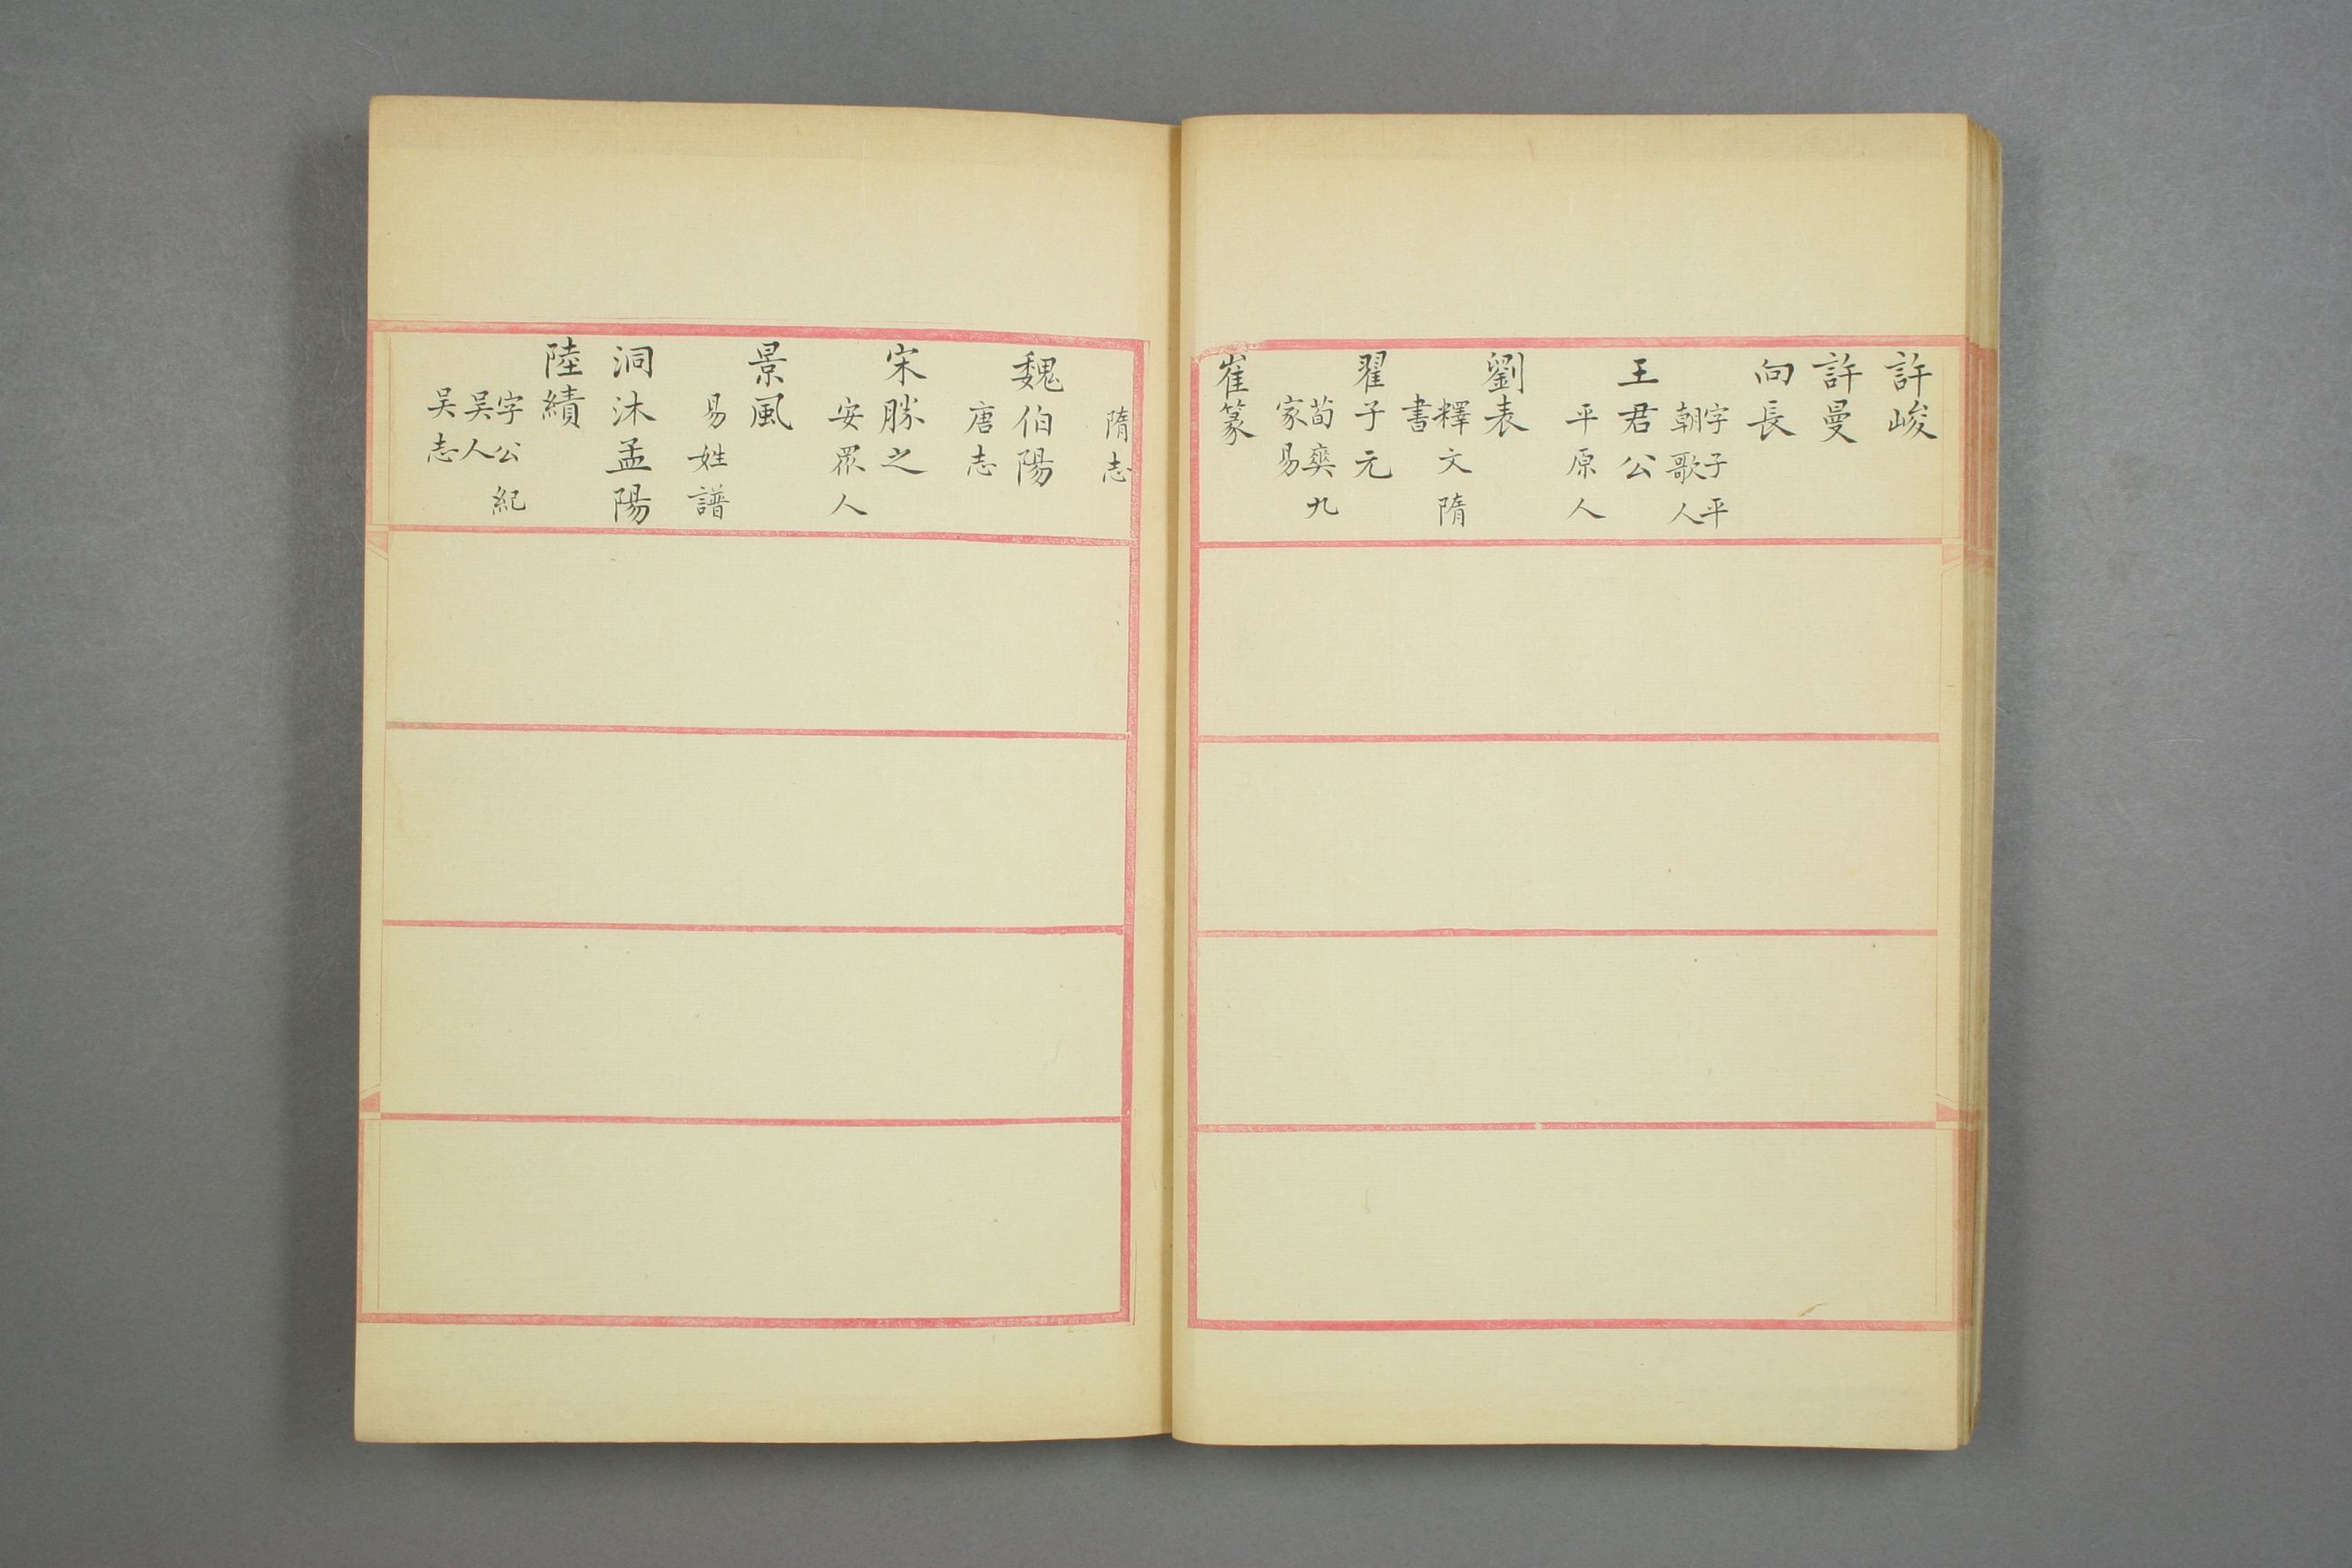 許峻
許曼
向長
字子平
朝歌人
王君公
平原人
劉表
釋文隋
書
翟子元
荀爽九
家易
崔篆
隋志
魏伯陽
唐志
宋勝之
安眾人
景風
易姓譜
洞沐孟陽
陸績
字公紀
吴人
吴志